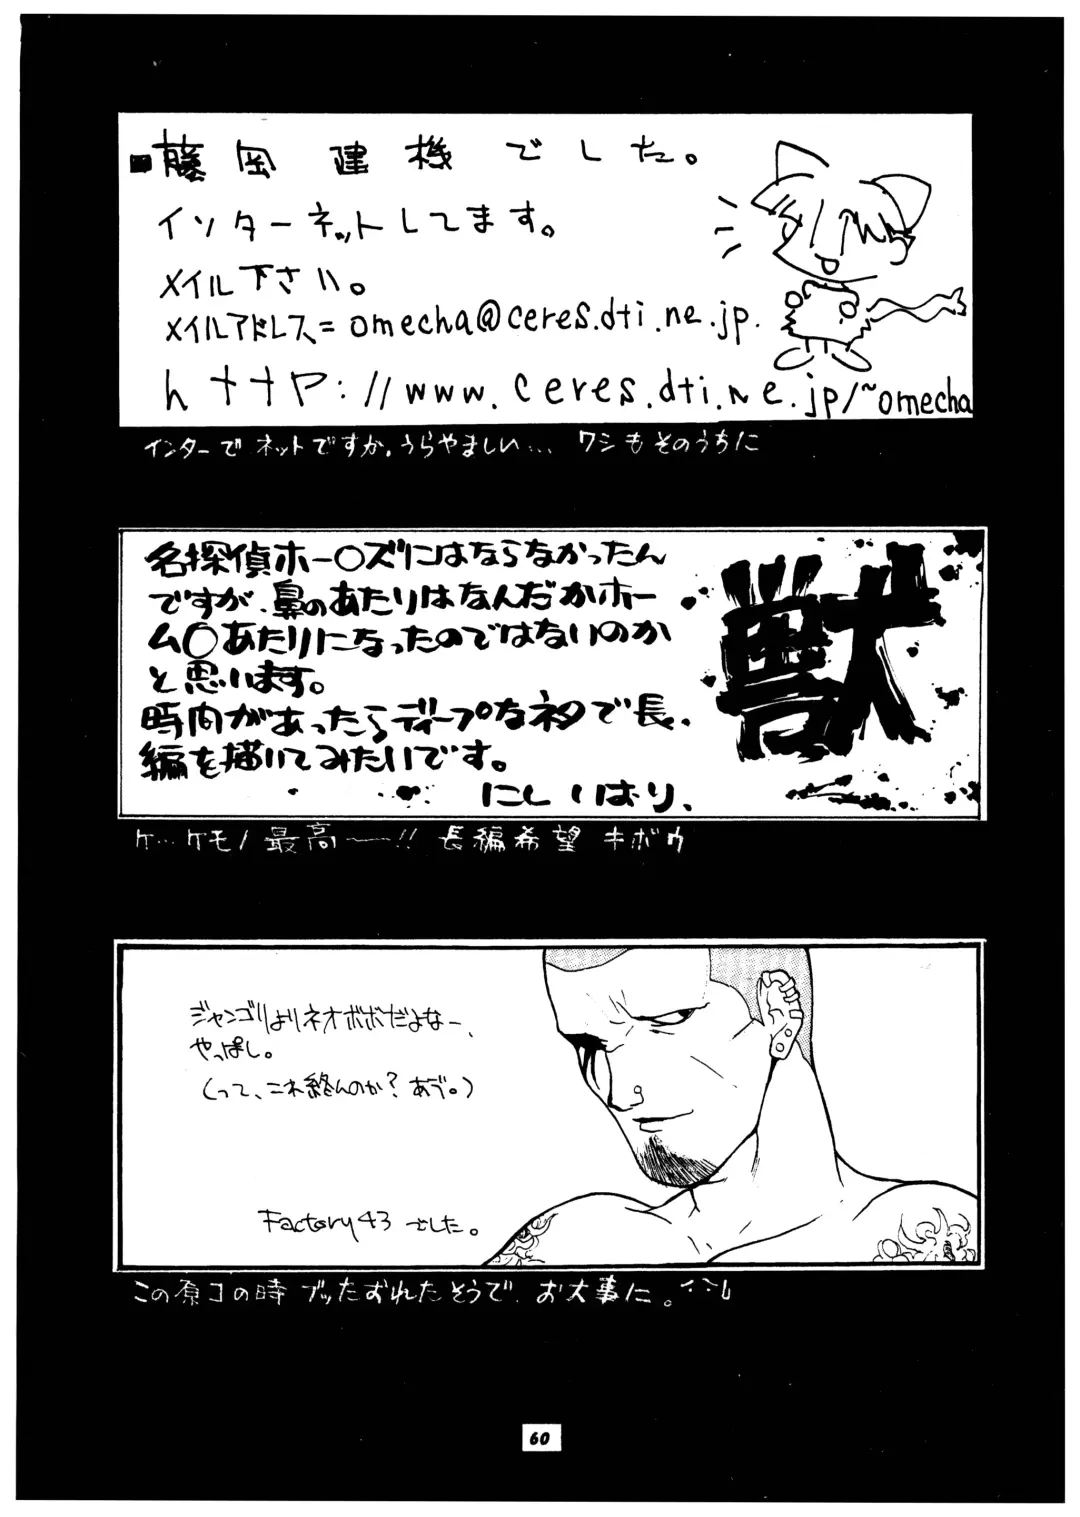 藤岡建機でした。
インターネットしてます。
メイル下さい。
メイルアドレス=omecha@ceres.dti.ne.jp.
hナナヤ://www.ceres.dti.ne.jp/~omecha
インターでネットですか。うらやましい… ワシもそのうちに
名探偵ホー〇ズにはならなかったん
ですが、鼻のあたりはなんだかホー
ム〇あたりになったのではないのか
と思います。
時間があったらディープなネタで長
編を描いてみたいです。
にしいはり、
獣
ケ…ケモノ最高――!! 長編希望 キボウ
ジャンゴリよりネオボボだよなー、
やっぱし。
(って、これ終んのか? あう。)
Factory43でした。
この原コの時ブッたおれたそうで、お大事に。
60